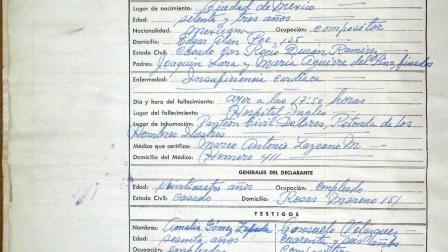 Lugar de nacimiento: Ciudad de Mexico
Edad: setenta y tres años
Nacionalidad: mexicana Ocupación: compositor
Domicilio: Edgar Alan Poe, 125
Estado Civil: Casado con Rocio Duran Ramirez
Padres: Joaquin Lara y Maria Aguirre del Pino, finados
Enfermedad: Insuficiencia cardiaca
Día y hora del fallecimiento: ayer a las 17:50 horas
Lugar del fallecimiento: Hospital Ingles
Lugar de inhumación: Panteón Civil Dolores, Rotonda de los
Hombres Ilustres
Médico que certifica: Marco Antonio Lazcano M.
Domicilio del Médico: Homero 411
GENERALES DEL DECLARANTE
Edad: años Ocupación: empleado
Estado Civil: casado Domicilio: Rosas Moreno 151
TESTIGOS
Nombres: Amelia Gómez Zepeda Consuelo Velázquez
Edad: sesenta años cuarenta y años
Ocupación: empleada compositora